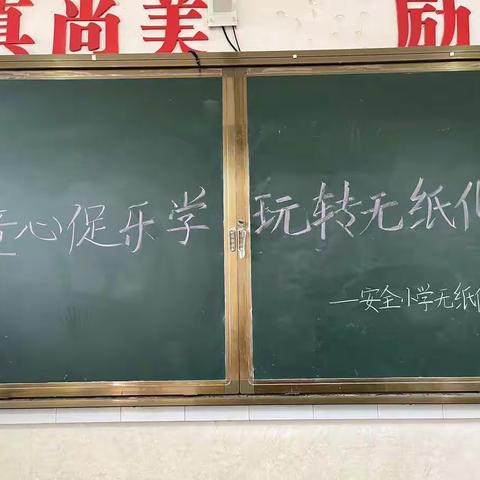 真尚美 励
童心促乐学 玩转无纸化
—安全小学无纸化